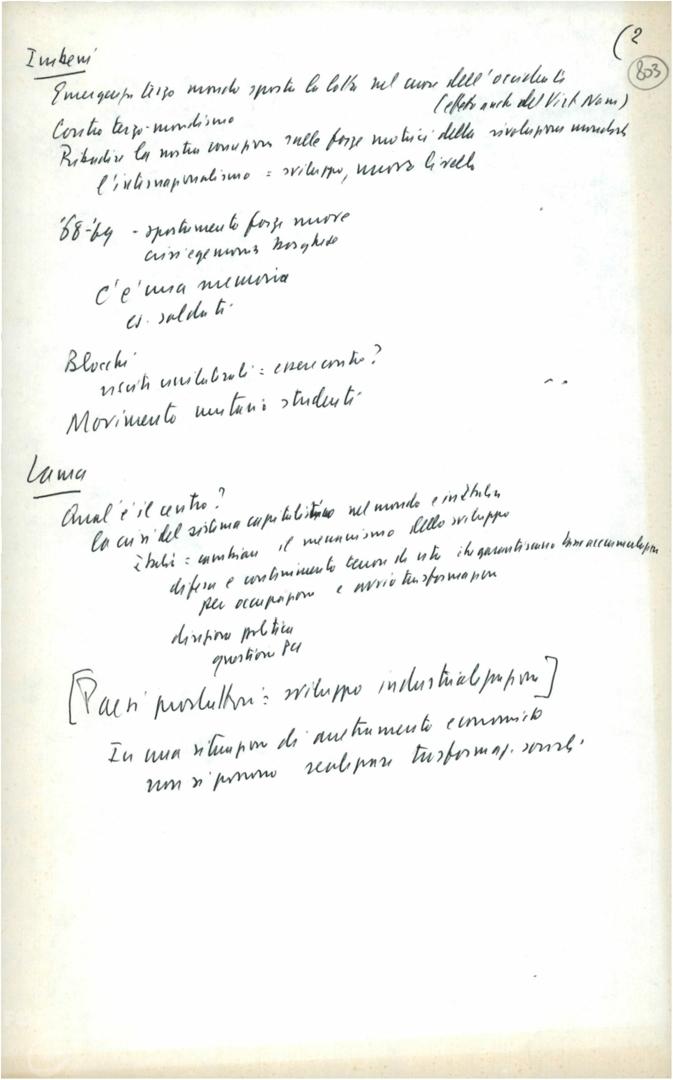 (2
803
Imbeni
Emergenza terzo mondo sposta la lotta nel cuore dell'occidente
(effetto anche del Viet Nam)
Contro terzo-mondismo
Ribadire la nostra concezione sulle forze motrici della rivoluzione mondiale
l'internazionalismo = sviluppo, nuovo livello
'68-'69 - spostamento forze nuove
crisi egemonia borghese
C'e' una memoria
es. soldati
Blocchi
uscite unilaterali = essere contro?
Movimento unitario studenti
Lama
Qual'è il centro?
la crisi del sistema capitalistico nel mondo e in Italia
Italia = cambiare il meccanismo dello sviluppo
difesa e contenimento tenore di vita che garantiscano accumulazione
per occupazione e avvio trasformazione
direzione politica
questione Pci
[Paesi produttori = sviluppo industrializzazione]
In una situazione di arretramento economico
non si possono realizzare trasformaz. sociali